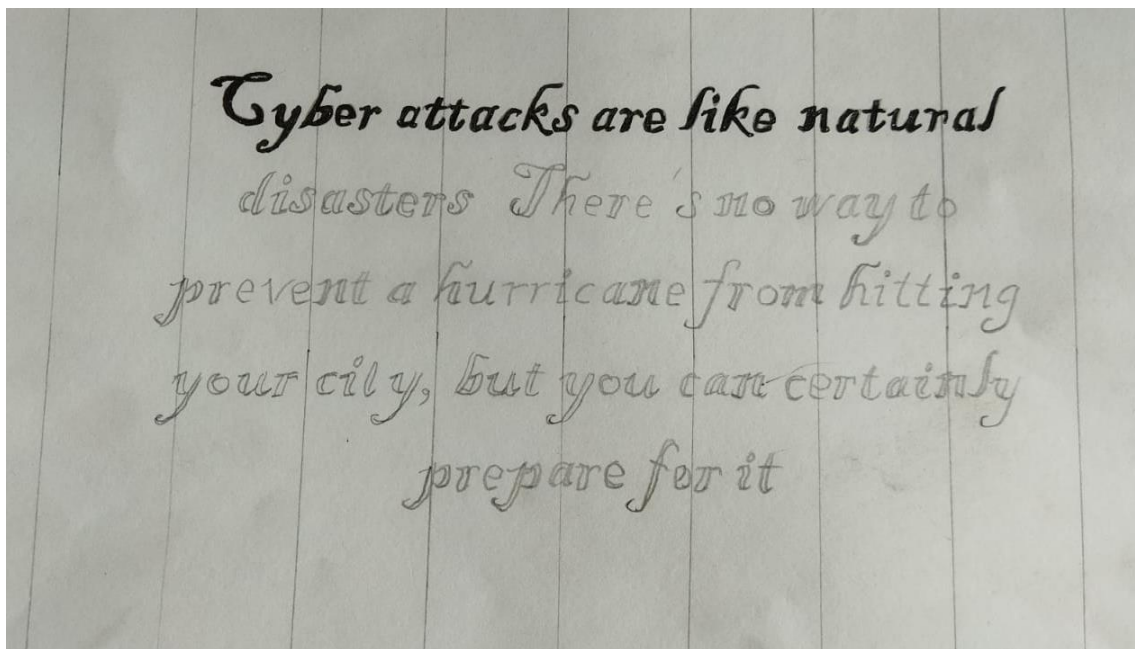 Cyber attacks are like natural
disasters There's no way to
prevent a hurricane from hitting
your city, but you can certainly
prepare for it